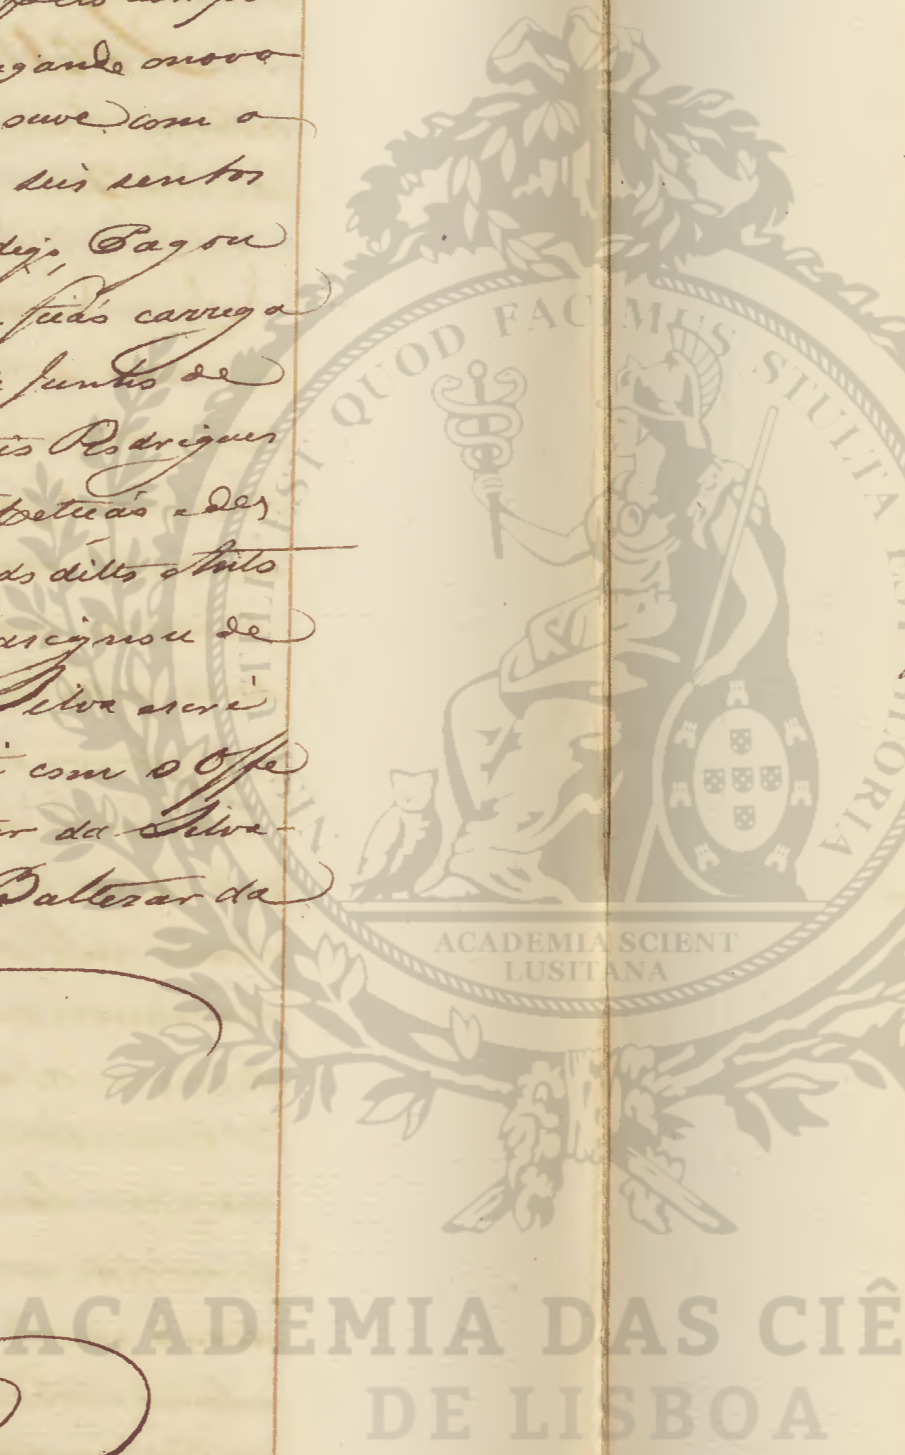 gande onovo
ouve com o
seis sentos
digo, Pagou
fiás carrega
Junto de
is Rodrigues
e des
do ditto Anto
asignou de
Silva escri
com o Offe
r da Silva
Baltezar da
NISI UTILE EST QUOD FACIMUS STULTA EST GLORIA
ACADEMIA SCIENT
LUSITANA
ACADEMIA DAS CIÊ
DE LISBOA